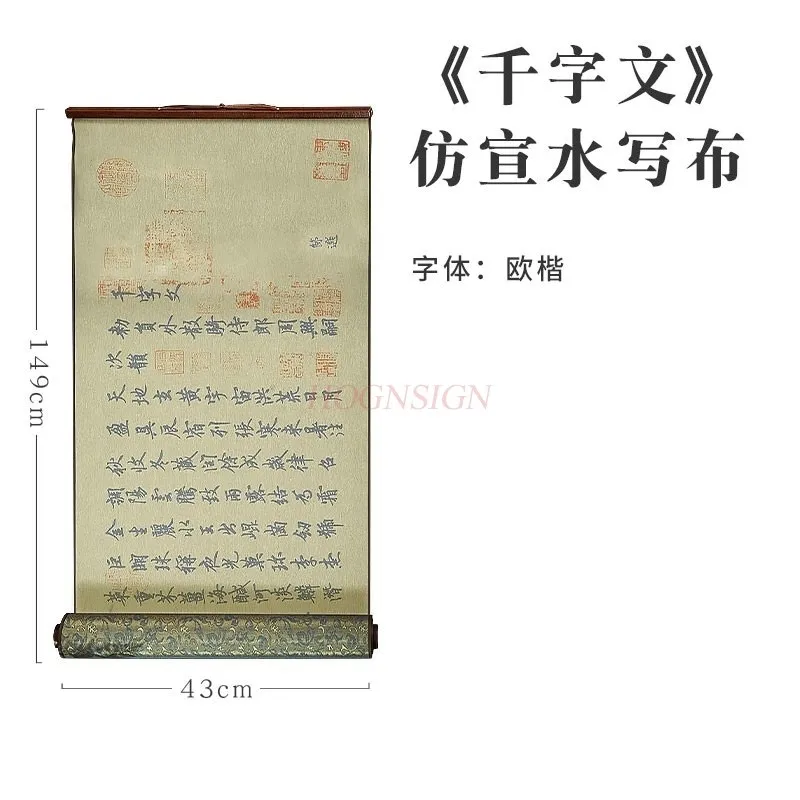 《千字文》
仿宣水写布
字体：欧楷
千字文
勑員外散騎侍郎周興嗣
次韻
天地玄黃宇宙洪荒日月
盈昃辰宿列張寒來暑往
秋收冬藏閏餘成歲律召
調陽雲騰致雨露結為霜
金生麗水玉出崐崗劒號
巨闕珠稱夜光菓珍李柰
菜重芥薑海鹹河淡鱗潛
HOGNSIGN
149cm
43cm